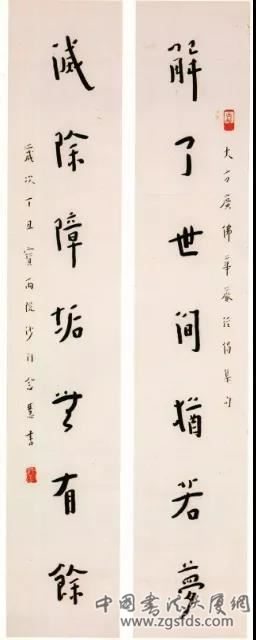 解了世間猶若夢
大方廣佛華嚴經偈集句
滅除障垢無有餘
歲次丁丑寶雨沙門慧書
中国书法大厦網
www.zgsfds.com